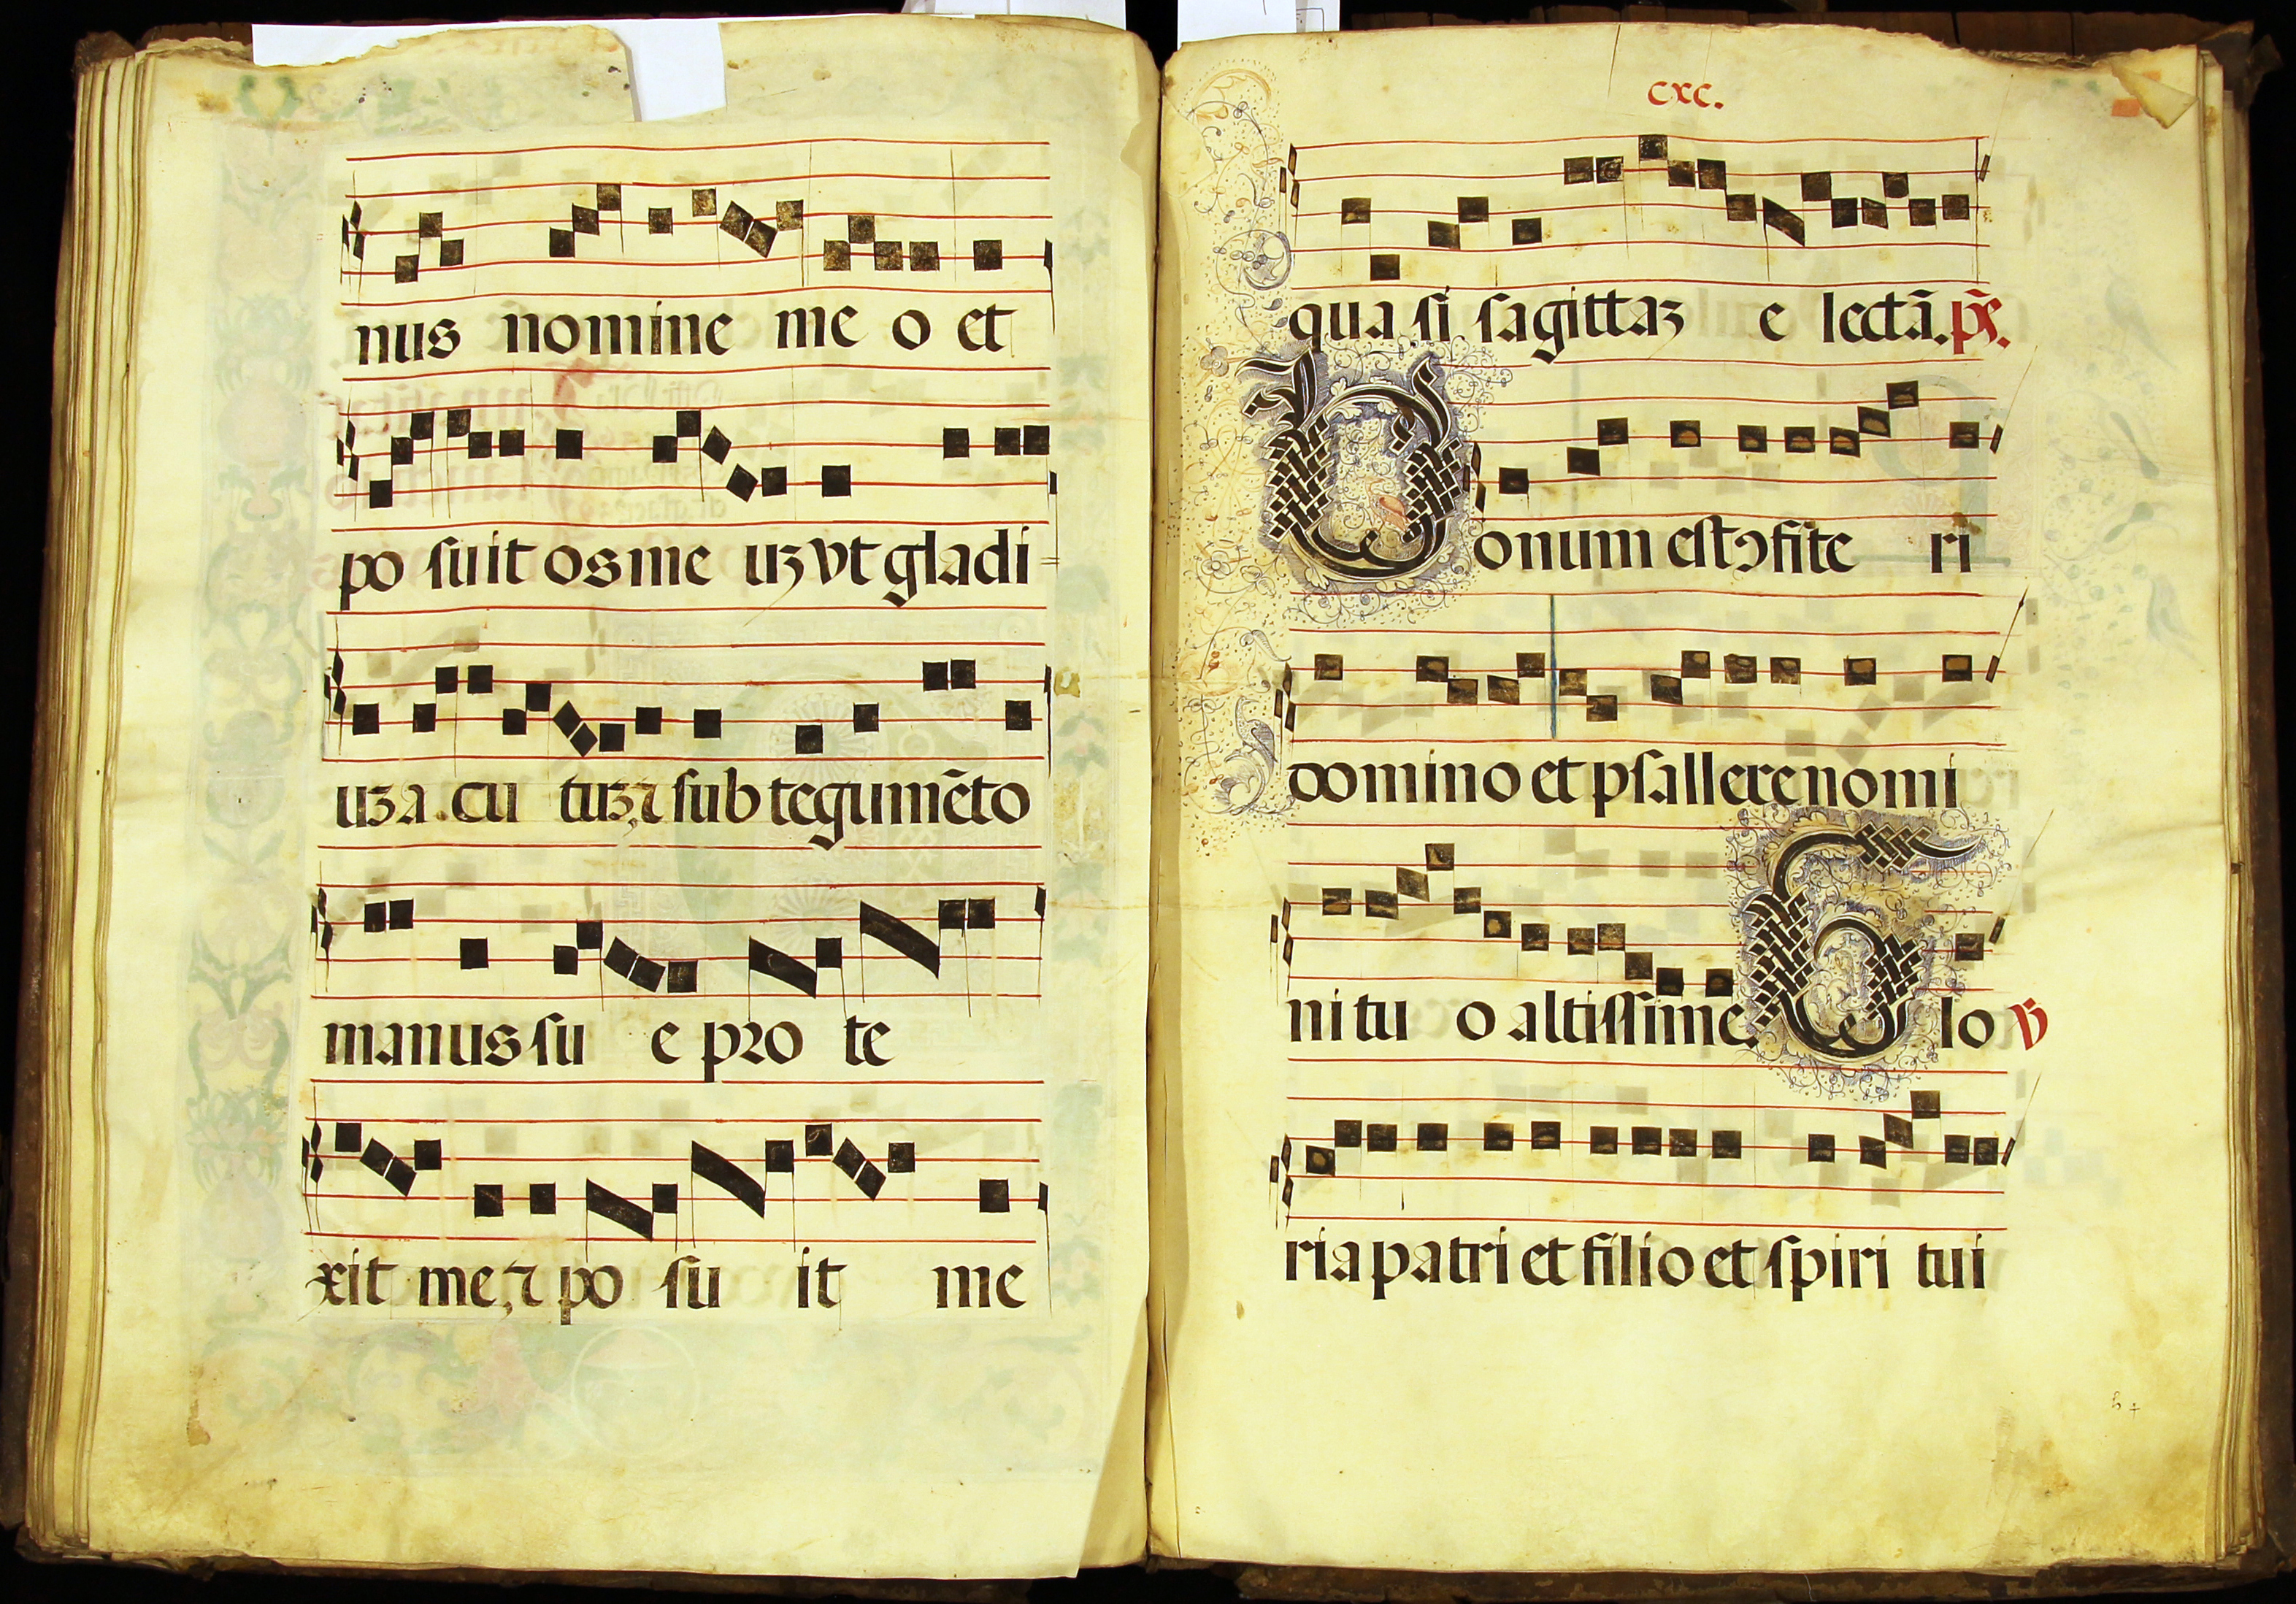 nus nomine me o et
po suit os me uꝫ vt gladi =
uꝫ a cu tuꝫ, ⁊ sub tegumẽto
manus su e pro te
xit me, ⁊ po su it me
cxc.
qua si sagittaꝫ e lectã. p̃s.
Bonum est ꝯfite ri
domino et psallere nomi
ni tu o altissime. Glo
ria patri et filio et spiri tui